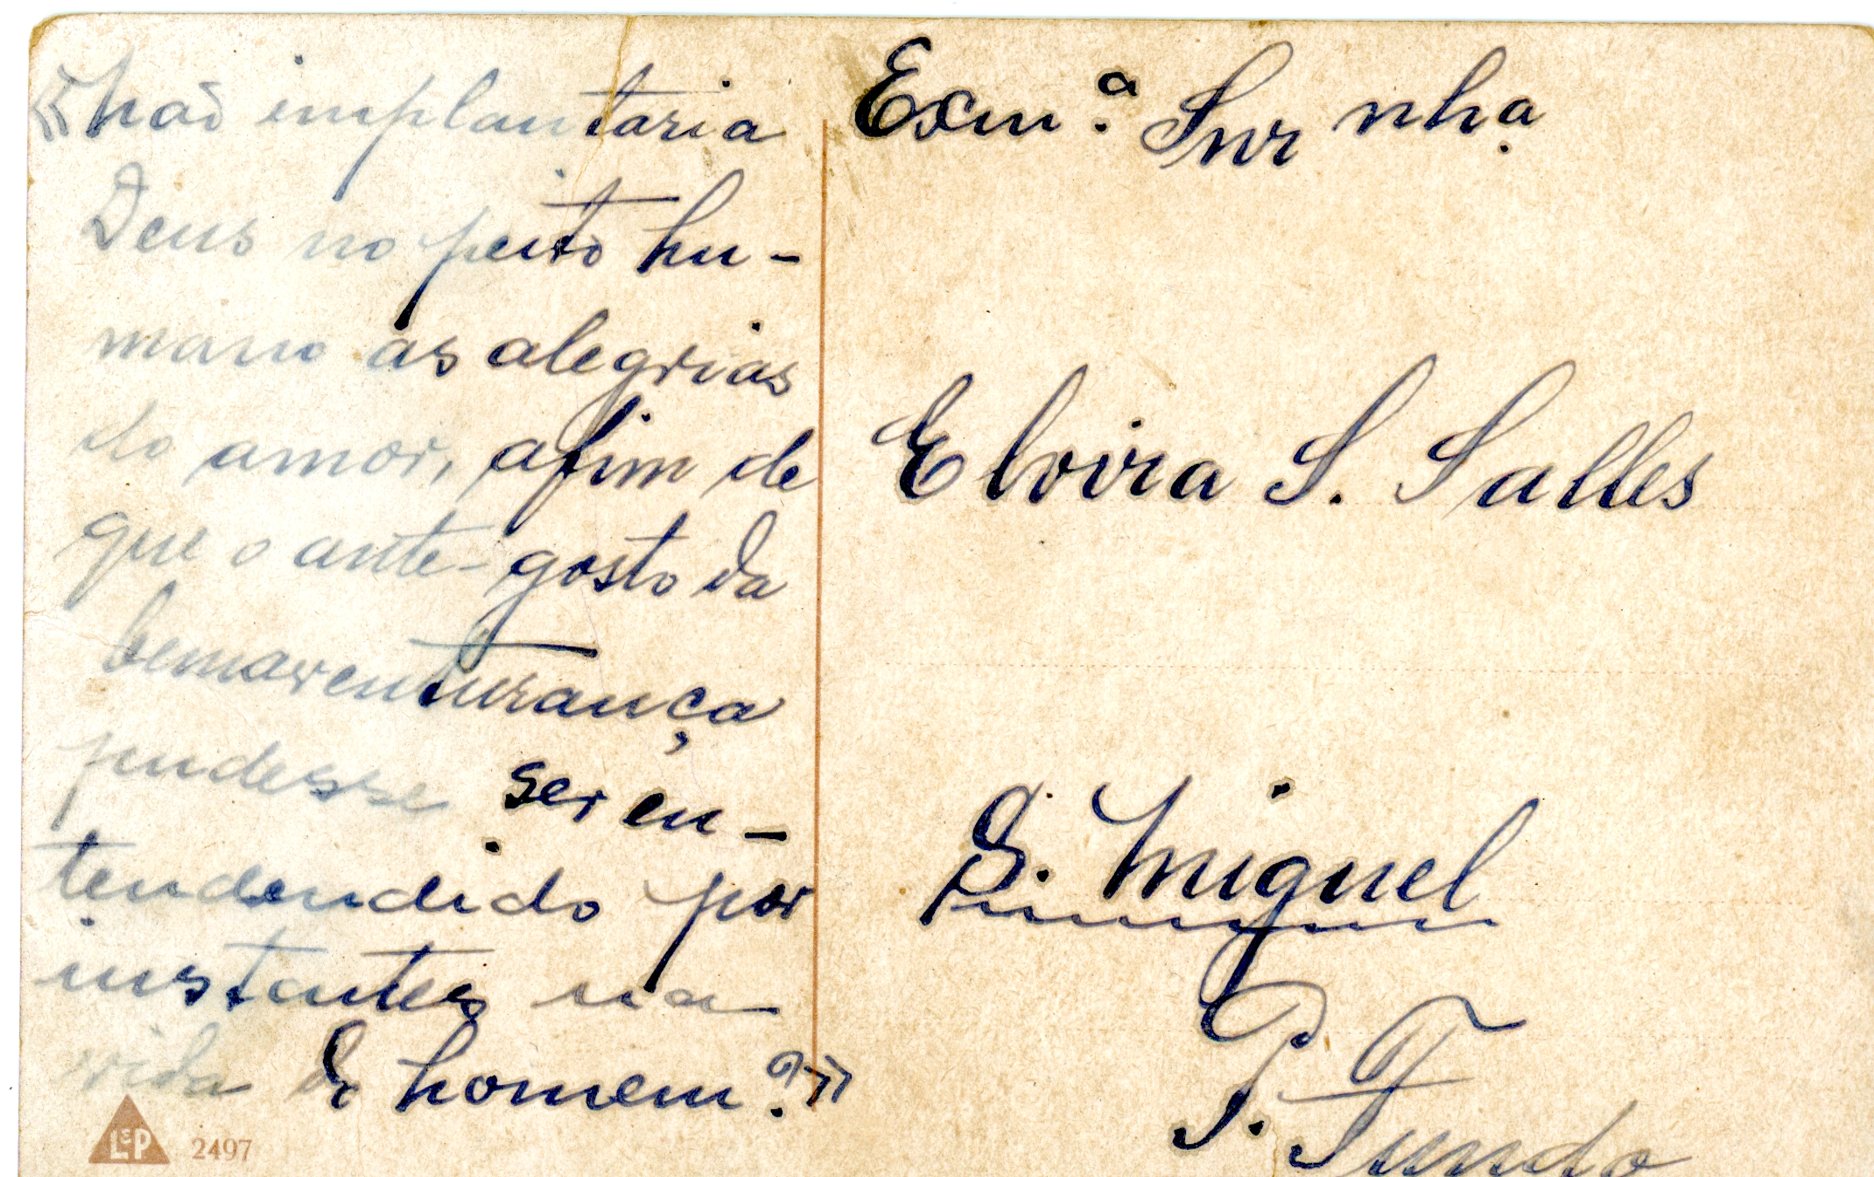 «Não implantaria
Deus no peito hu-
mano as alegrias
do amor, afim de
que o ante-gosto da
bemaventurança
pudesse ser en-
tendendido por
instantes na
vida do homem?»
L&P 2497
Exm.ª Snrnhạ
Elvira S. Salles
S. Miguel
P. Fundo